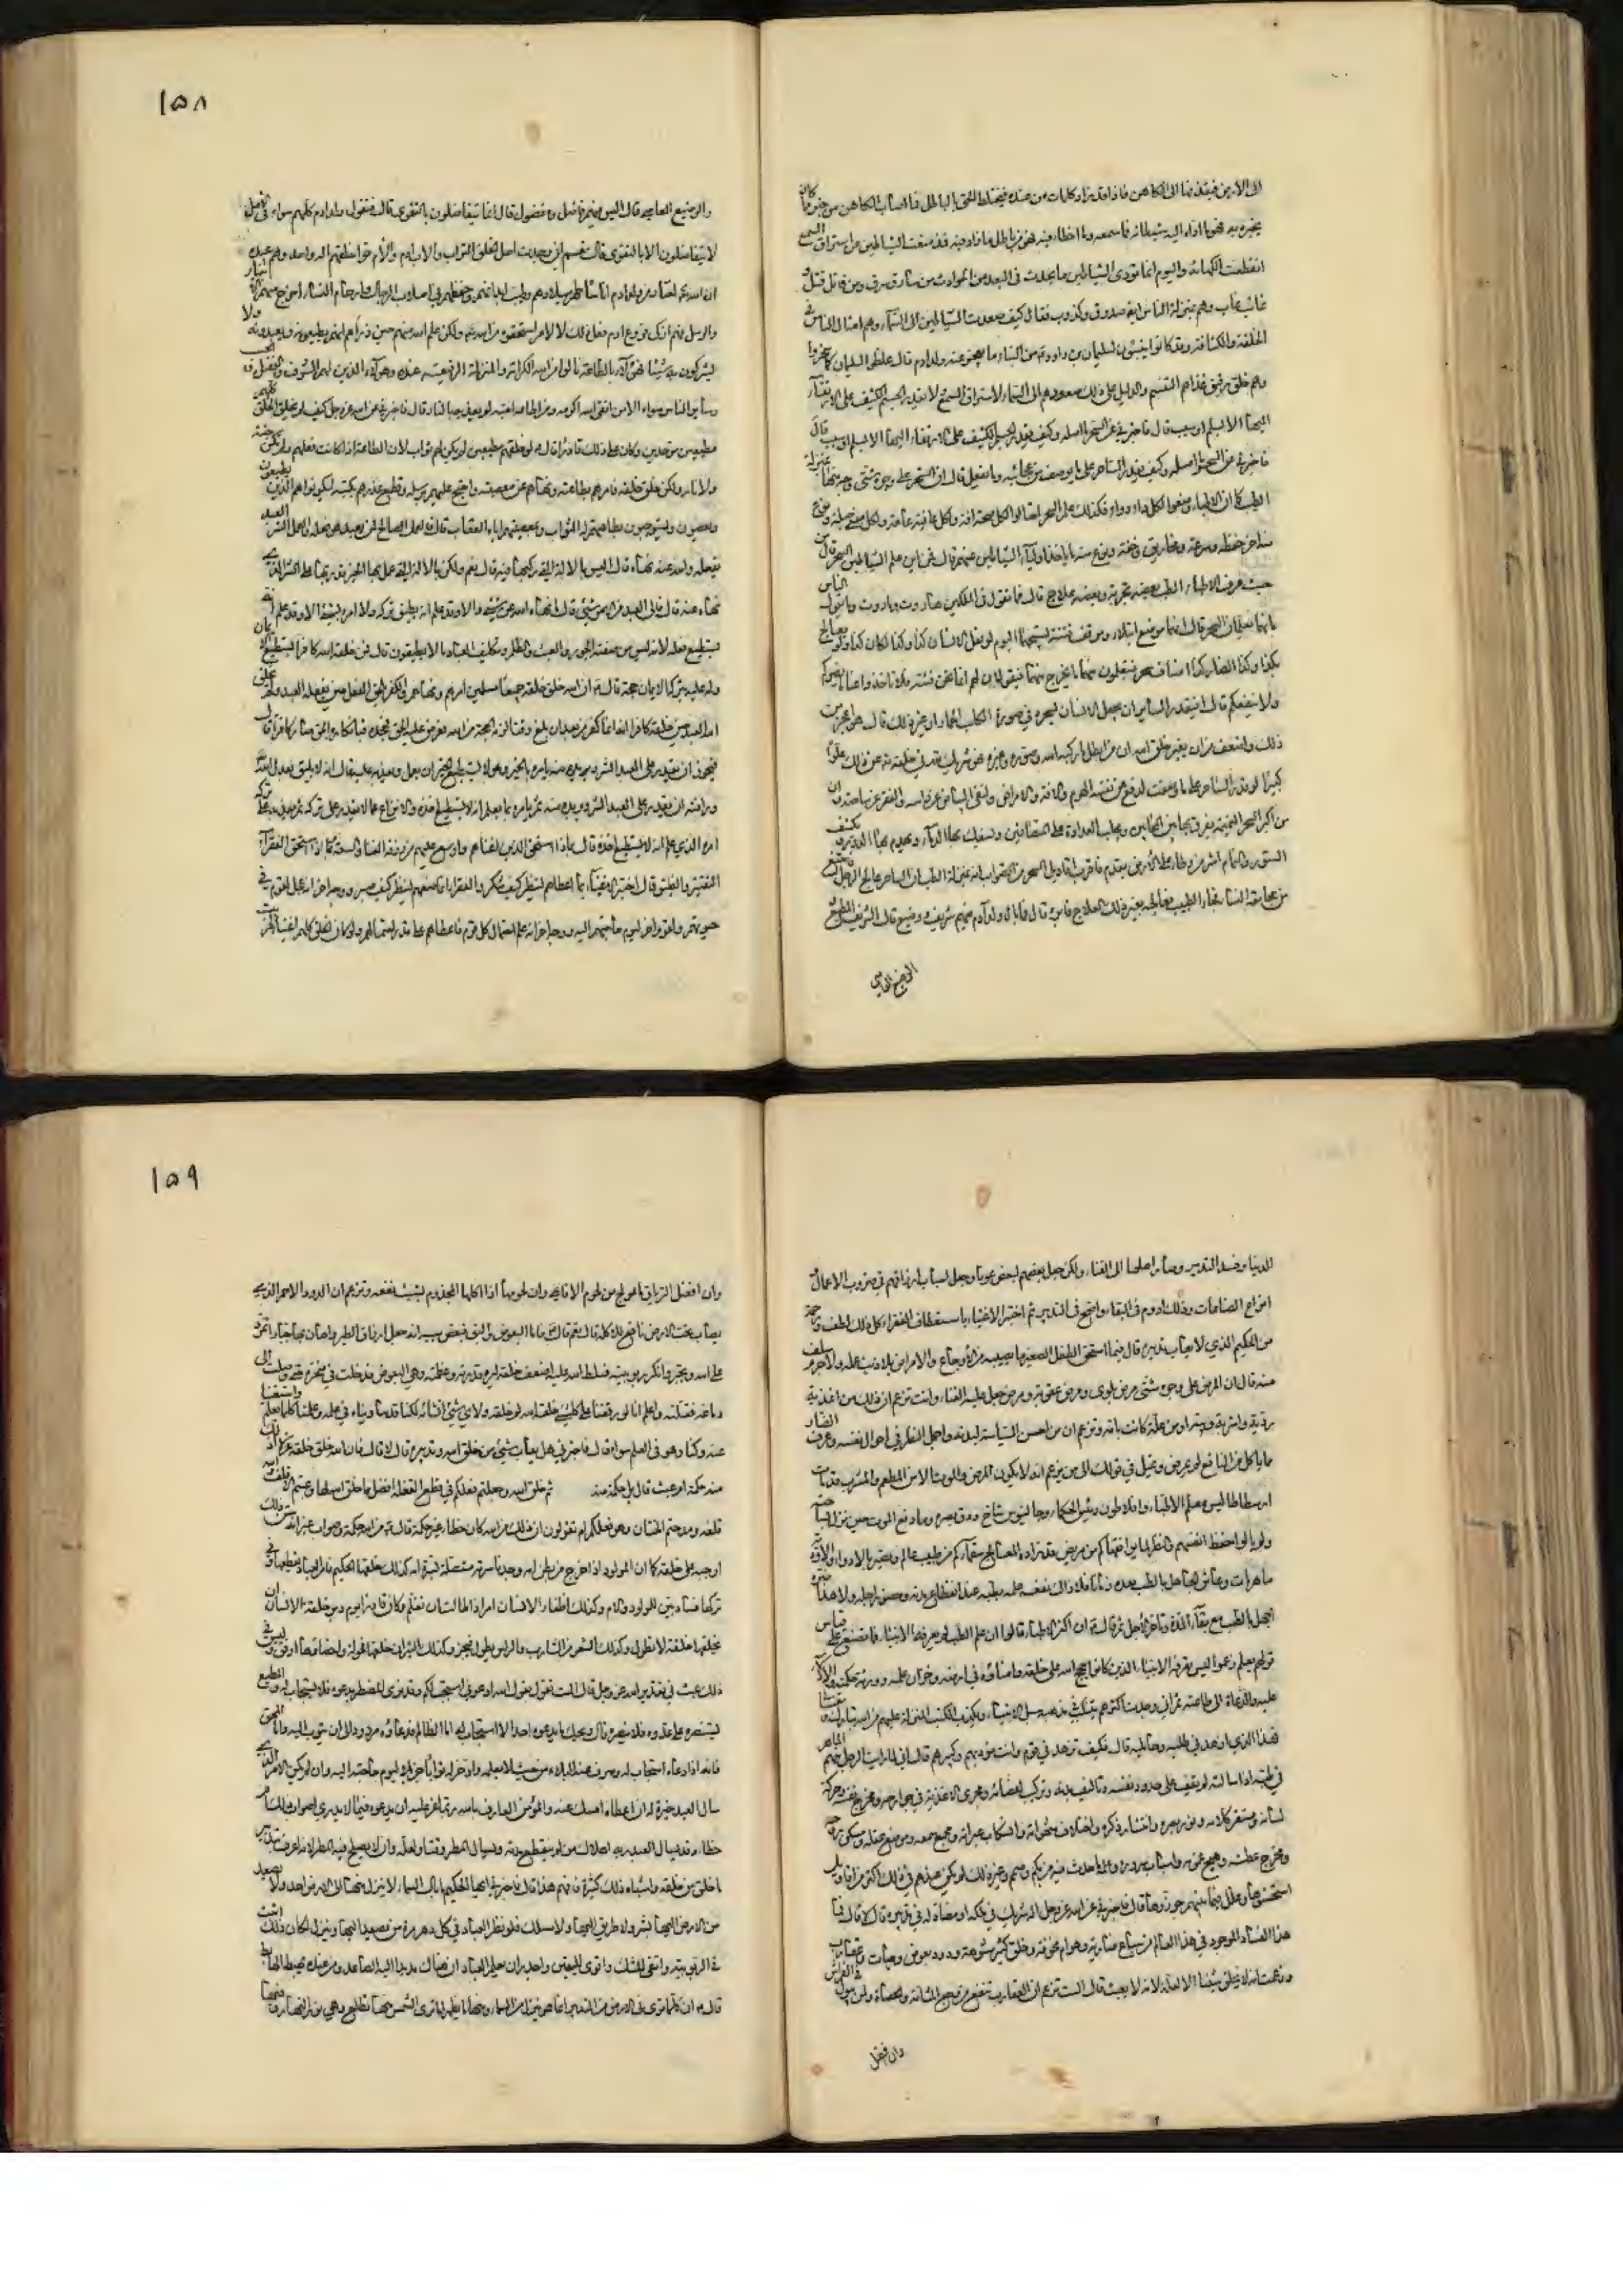 الى الارض فيقذفها الى الكاهن فاذا قد زاد كلمات من عنده فيختلط الحق بالباطل فما اصاب الكاهن من خبر مما كان
يخبر به فهو ما اداه اليه شيطانه مما سمعه وما اخطا فيه فهو من باطل ما زاد فيه فمذ منعت الشياطين عن استراق السمع
انقطعت الكهانة واليوم انما تودى الشياطين ما يحدث فى البعد من الحوادث من سارق سرق ومن قاتل قتل
غائب غاب وهم بمنزلة الناس ايضا صدوق وكذوب فقال كيف صعدت الشياطين الى السماء وهم امثال الناس فى
الخلقة والكثافة وقد كانوا يبنون لسليمان بن داود من البناء ما يعجز عنه ولد ادم قال غلظوا لسليمان كما سخروا
وهم خلق رقيق غذاهم التنسم والدليل على ذلك صعودهم الى السماء لاستراق السمع لا يقدر الجسم الكثيف على الارتقاء
اليها الا بسلم او سبب قال
فاخبرنى عن السحر ما اصله وكيف يقدر الساحر على ما يوصف من عجائبه وما يفعل قال ان السحر على وجوه شتى وجه منها بمنزلة
الطب كما ان الاطباء وضعوا لكل داء دواء فكذلك علم السحر احتالوا لكل صحة افة ولكل عافية عاهة ولكل معنى حيلة ونوع
منه اخر خطفة وسرعة ومخاريق وخفة ونوع منه ما ياخذ اولياء الشياطين عنهم قال فمن اين علم الشياطين السحر قال من
حيث عرف الاطباء الطب بعضه تجربة وبعضه علاج قال فما تقول فى الملكين هاروت وماروت وما يقول الناس
بانهما يعلمان السحر قال انهما موضع ابتلاء وموقف فتنة تسبيحهما اليوم لو فعل الانسان كذا وكذا لكان كذا ولو يعالج
بكذا وكذا لصار كذا اصناف سحر فيتعلمون منهما ما يخرج عنهما فيقولان لهم انما نحن فتنة فلا تاخذوا عنا ما يضركم
ولا ينفعكم قال افيقدر الساحر ان يجعل الانسان بسحره فى صورة الكلب او الحمار او غير ذلك قال هو اعجز من
ذلك واضعف من ان يغير خلق الله ان من ابطل ما ركبه الله وصوره وغيره فهو شريك لله فى خلقه تعالى عن ذلك علوا
كبيرا لو قدر الساحر على ما وصفت لدفع عن نفسه الهرم والافة والامراض ولنفى البياض عن راسه والفقر عن ساحته وان
من اكبر السحر النميمة يفرق بها بين المتحابين ويجلب العداوة على المتصافين ويسفك بها الدماء ويهدم بها الدور ويكشف
الستور والنمام اشر من وطئ على الارض بقدم فاقرب اقاويل السحر من الصواب انه بمنزلة الطب ان الساحر عالج الرجل فامتنع
من مجامعة النساء فجاء الطبيب فعالجه بغير ذلك العلاج فابرئ قال فما بال ولد آدم فيهم شريف ووضيع قال الشريف المطيع
الوضيع العاصى
والوضيع العاصى قال اليس فيهم فاضل ومفضول قال انما يتفاضلون بالتقوى قال فتقول ان ولد ادم كلهم سواء فى الاصل
لا يتفاضلون الا بالتقوى قال نعم انى وجدت اصل الخلق التراب والاب ادم والام حوا خلقهم اله واحد وهم عبيده
ان الله عز وجل اختار من ولد ادم اناسا طهر ميلادهم وطيب ابدانهم وحفظهم فى اصلاب الرجال وارحام النساء اخرج منهم الانبياء
والرسل فهم ازكى فروع ادم فعل ذلك لا لامر استحقوه من الله عز وجل ولكن علم الله منهم حين ذراهم انهم يطيعونه ويعبدونه ولا
يشركون به شيئا فهؤلاء بالطاعة نالوا من الله الكرامة والمنزلة الرفيعة عنده وهؤلاء الذين لهم الشرف والفضل والحسب
وسائر الناس سواء الا من اتقى الله اكرمه ومن اطاعه احبه ومن احبه لم يعذبه بالنار قال فاخبرنى عن الله عز وجل كيف لم يخلق الخلق كلهم
مطيعين موحدين وكان على ذلك قادرا قال لو خلقهم مطيعين لم يكن لهم ثواب لان الطاعة اذا ما كانت فعلهم ولم تكن جنة
ولا نار ولكن خلق خلقه فامرهم بطاعته ونهاهم عن معصيته واحتج عليهم برسله وقطع عذرهم بكتبه ليكونوا هم الذين يطيعون
ويعصون ويستوجبون بطاعتهم له الثواب وبمعصيتهم اياه العقاب قال فالعمل الصالح من العبد هو فعله والعمل الشر من العبد
يفعله والله عنه نهاه قال اليس بالالة التى ركبها فيه قال نعم ولكن بالالة التى عمل بها الخير قدر بها على الشر الذى
نهاه عنه قال فالى العبد من الامر شىء قال ما نهاه الله عن شىء الا وقد علم انه يطيق تركه ولا امره بشىء الا وقد علم انه
يستطيع فعله لانه ليس من صفته الجور والعبث والظلم وتكليف العباد ما لا يطيقون قال فمن خلقه الله كافرا يستطيع الايمان
وله عليه بتركه الايمان حجة قال ان الله خلق خلقه جميعا مسلمين امرهم ونهاهم والكفر اسم يلحق الفعل حين يفعله العبد ولم يخلق
الله العبد حين خلقه كافرا انه انما كفر من بعد ان بلغ وقتا لزمته الحجة من الله فعرض عليه الحق فجحده فبانكاره الحق صار كافرا قال
فيجوز ان يقدر على العبد الشر ويامره بالخير وهو لا يستطيع الخير ان يعمله ويعذبه عليه قال انه لا يليق بعدل الله
ورافته ان يقدر على العبد الشر ويريده منه ثم يامره بما يعلم انه لا يستطيع اخذه والانزاع عما لا يقدر على تركه ثم يعذبه على تركه
امره الذى علم انه لا يستطيع اخذه قال فبماذا استحق الذين اغناهم واوسع عليهم من رزقه الغنا والسعة وبماذا استحق الفقراء
التقتير والضيق قال اختبر الاغنياء بما اعطاهم لينظر كيف شكرهم والفقراء بما منعهم لينظر كيف صبرهم ووجه اخر انه عجل لقوم فى
حيوتهم ولقوم اخر ليوم حاجتهم اليه ووجه اخر انه علم احتمال كل قوم فاعطاهم على قدر احتمالهم ولو كان الخلق كلهم اغنياء لخربت
١٥٨
الدنيا وفسد التدبير وصار اهلها الى الفناء ولكن جعل بعضهم لبعض عونا وجعل اسباب ارزاقهم فى ضروب الاعمال و
انواع الصناعات وذلك ادوم فى البقاء واصح فى التدبير ثم اختبر الاغنياء باستعطاف الفقراء كل ذلك لطف ورحمة
من الحكيم الذى لا يعاب تدبيره قال فبما استحق الطفل الصغير ما يصيبه من الاوجاع والامراض بلا ذنب عمله ولا جرم سلف
منه قال ان المرض على وجوه شتى مرض بلوى ومرض عقوبة ومرض جعل علة للفناء وانت تزعم ان ذلك من اغذية
ردية واشربة وبية او من علة كانت بامه وتزعم ان من احسن السياسة لبدنه واجمل النظر فى احوال نفسه وعرف الضار
مما ياكل من النافع لم يمرض وتميل فى قولك الى من يزعم انه لا يكون المرض والموت الا من المطعم والمشرب قد مات
ارسطاطاليس معلم الاطباء وافلاطون رئيس الحكماء وجالينوس شاخ ودق بصره وما دفع الموت حين نزل بساحته
ولم يالوا حفظ انفسهم والنظر لما يوافقها كم من مريض قد زاده المعالج سقما وكم من طبيب عالم وبصير بالادواء والادوية
ماهر مات وعاش الجاهل بالطب بعده زمانا فلا ذاك نفعه علمه بطبه عند انقطاع مدته وحضور اجله ولا هذا ضره
الجهل بالطب مع بقاء المدة وتاخر الاجل ثم قال ان اكثر الاطباء قالوا ان علم الطب لم يعرفه الانبياء فما تصنع على قياس
قولهم بعلم زعموا ليس تعرفه الانبياء الذين كانوا حجج الله على خلقه وامنائه فى ارضه وخزان علمه وورثة حكمته والادلاء
عليه والدعاة الى طاعته ثم انى وجدت اكثرهم يتنكب فى مذهبه سبل الانبياء ويكذب الكتب المنزلة عليهم من الله تبارك وتعالى
فهذا الذى ازهدنى فى طلبه وحامليه قال فكيف تزهد فى قوم وانت مؤدبهم وكبيرهم قال انى لما رايت الرجل منهم الماهر
فى طبه اذا سالته لم يقف على حدود نفسه وتاليف بدنه وتركيب اعضائه ومجرى الاغذية فى جوارحه ومخرج نفسه وحركة
لسانه ومستقر كلامه ونور بصره وانتشار ذكره واختلاف شهواته وانسكاب عبراته ومجمع سمعه وموضع عقله ومسكن روحه
ومخرج عطسته وهيج غمومه واسباب سروره وعلة ما حدث فيه من بكم وصمم وغير ذلك لم يكن عندهم فى ذلك اكثر من اقاويل
استحسنوها وعلل فيما بينهم جوزوها قال فاخبرنى عن الله عز وجل اله شريك فى ملكه او مضاد له فى تدبيره قال لا قال فما
هذا الفساد الموجود فى هذا العالم من سباع ضارية وهوام مخوفة وخلق كثير مشوهة ودود وبعوض وحيات وعقارب
وزعمت انه لا يخلق شيئا الا لعلة لانه لا يعبث قال الست تزعم ان العقارب تنفع من وجع المثانة والحصاة ولمن يبول فى الفراش
وان افضل
وان افضل الترياق ما عولج من لحوم الافاعى وان لحومها اذا اكلها المجذوم بشب نفعه وتزعم ان الدود الاحمر الذى
يصاب تحت الارض نافع للاكلة قال نعم قال فاما البعوض والبق فبعض سببه انه جعل ارزاق الطير واهان بها جبارا تمرد
على الله وتجبر وانكر ربوبيته فسلط الله عليه اضعف خلقه ليريه قدرته وعظمته وهى البعوض فدخلت فى منخره حتى وصلت الى
دماغه فقتلته واعلم انا لو وقفنا على كل شىء خلقه الله لم خلقه ولاى شىء انشاه لكنا قد ساويناه فى علمه وعلمنا كلما يعلم واستغنينا
عنه وكنا وهو فى العلم سواء قال فاخبرنى هل يعاب شىء من خلق الله وتدبيره قال لا قال فان الله خلق خلقه غرلا اذلك
منه حكمة ام عبث قال بل حكمة منه قال غيرتم خلق الله وجعلتم فعلكم فى قطع القلفة افضل مما خلق الله لها وعبتم الاقلف والله
خلقه ومدحتم الختان وهو فعلكم ام تقولون ان ذلك من الله كان خطا غير حكمة قال ذلك من الله حكمة وصواب غير انه سن ذلك
اوجبه على خلقه كما ان المولود اذا خرج من بطن امه وجدنا سرته متصلة بسرة امه كذلك خلقها الحكيم فامر العباد بقطعها وفى
تركها فساد بين للمولود والام وكذلك اظفار الانسان امر اذا طالت ان تقلم وكان قادرا يوم دبر خلقة الانسان ان
يخلقها خلقة لا تطول وكذلك الشعر من الشارب والراس يطول فيجز وكذلك الثيران خلقها فحولة واخصاؤها اوفق وليس فى
ذلك عيب فى تقدير الله عز وجل قال الست تقول يقول الله ادعونى استجب لكم وقد نرى المضطر يدعوه فلا يستجاب له والمطيع
يستنصره على عدوه فلا ينصره قال ويحك ما يدعوه احد الا استجاب له اما الظالم فدعاؤه مردود الى ان يتوب اليه واما المحق
فانه اذا دعاه استجاب له وصرف عنه البلاء من حيث لا يعلمه وادخر له ثوابا جزيلا ليوم حاجته اليه وان لم يكن الامر الذى
سال العبد خيرة له ان اعطاه امسك عنه والمؤمن العارف بالله ربما عز عليه ان يدعوه فيما لا يدرى اصواب ذلك ام
خطاء وقد يسال العبد ربه اهلاك من لم ينقطع مدته ويسال المطر وقتا ولعله اوان لا يصلح فيه المطر لانه اعرف بتدبير
ما خلق من خلقه واشباه ذلك كثيرة فافهم هذا قال فاخبرنى ايها الحكيم ما بال السماء لا ينزل منها الى الارض احد ولا يصعد
من الارض اليها بشر ولا طريق اليها ولا مسلك فلو نظر العباد فى كل دهر مرة من يصعد اليها وينزل لكان ذلك اثبت
فى الربوبية وانفى للشك واقوى لليقين واجدر ان يعلم العباد ان هناك مدبرا اليه يصعد الصاعد ومن عنده يهبط الهابط
قال ان كلما ترى فى الارض من التدبير انما هو ينزل من السماء ومنها ما يظهر اما ترى الشمس منها تطلع وهى نور النهار ومنها
١٥٩